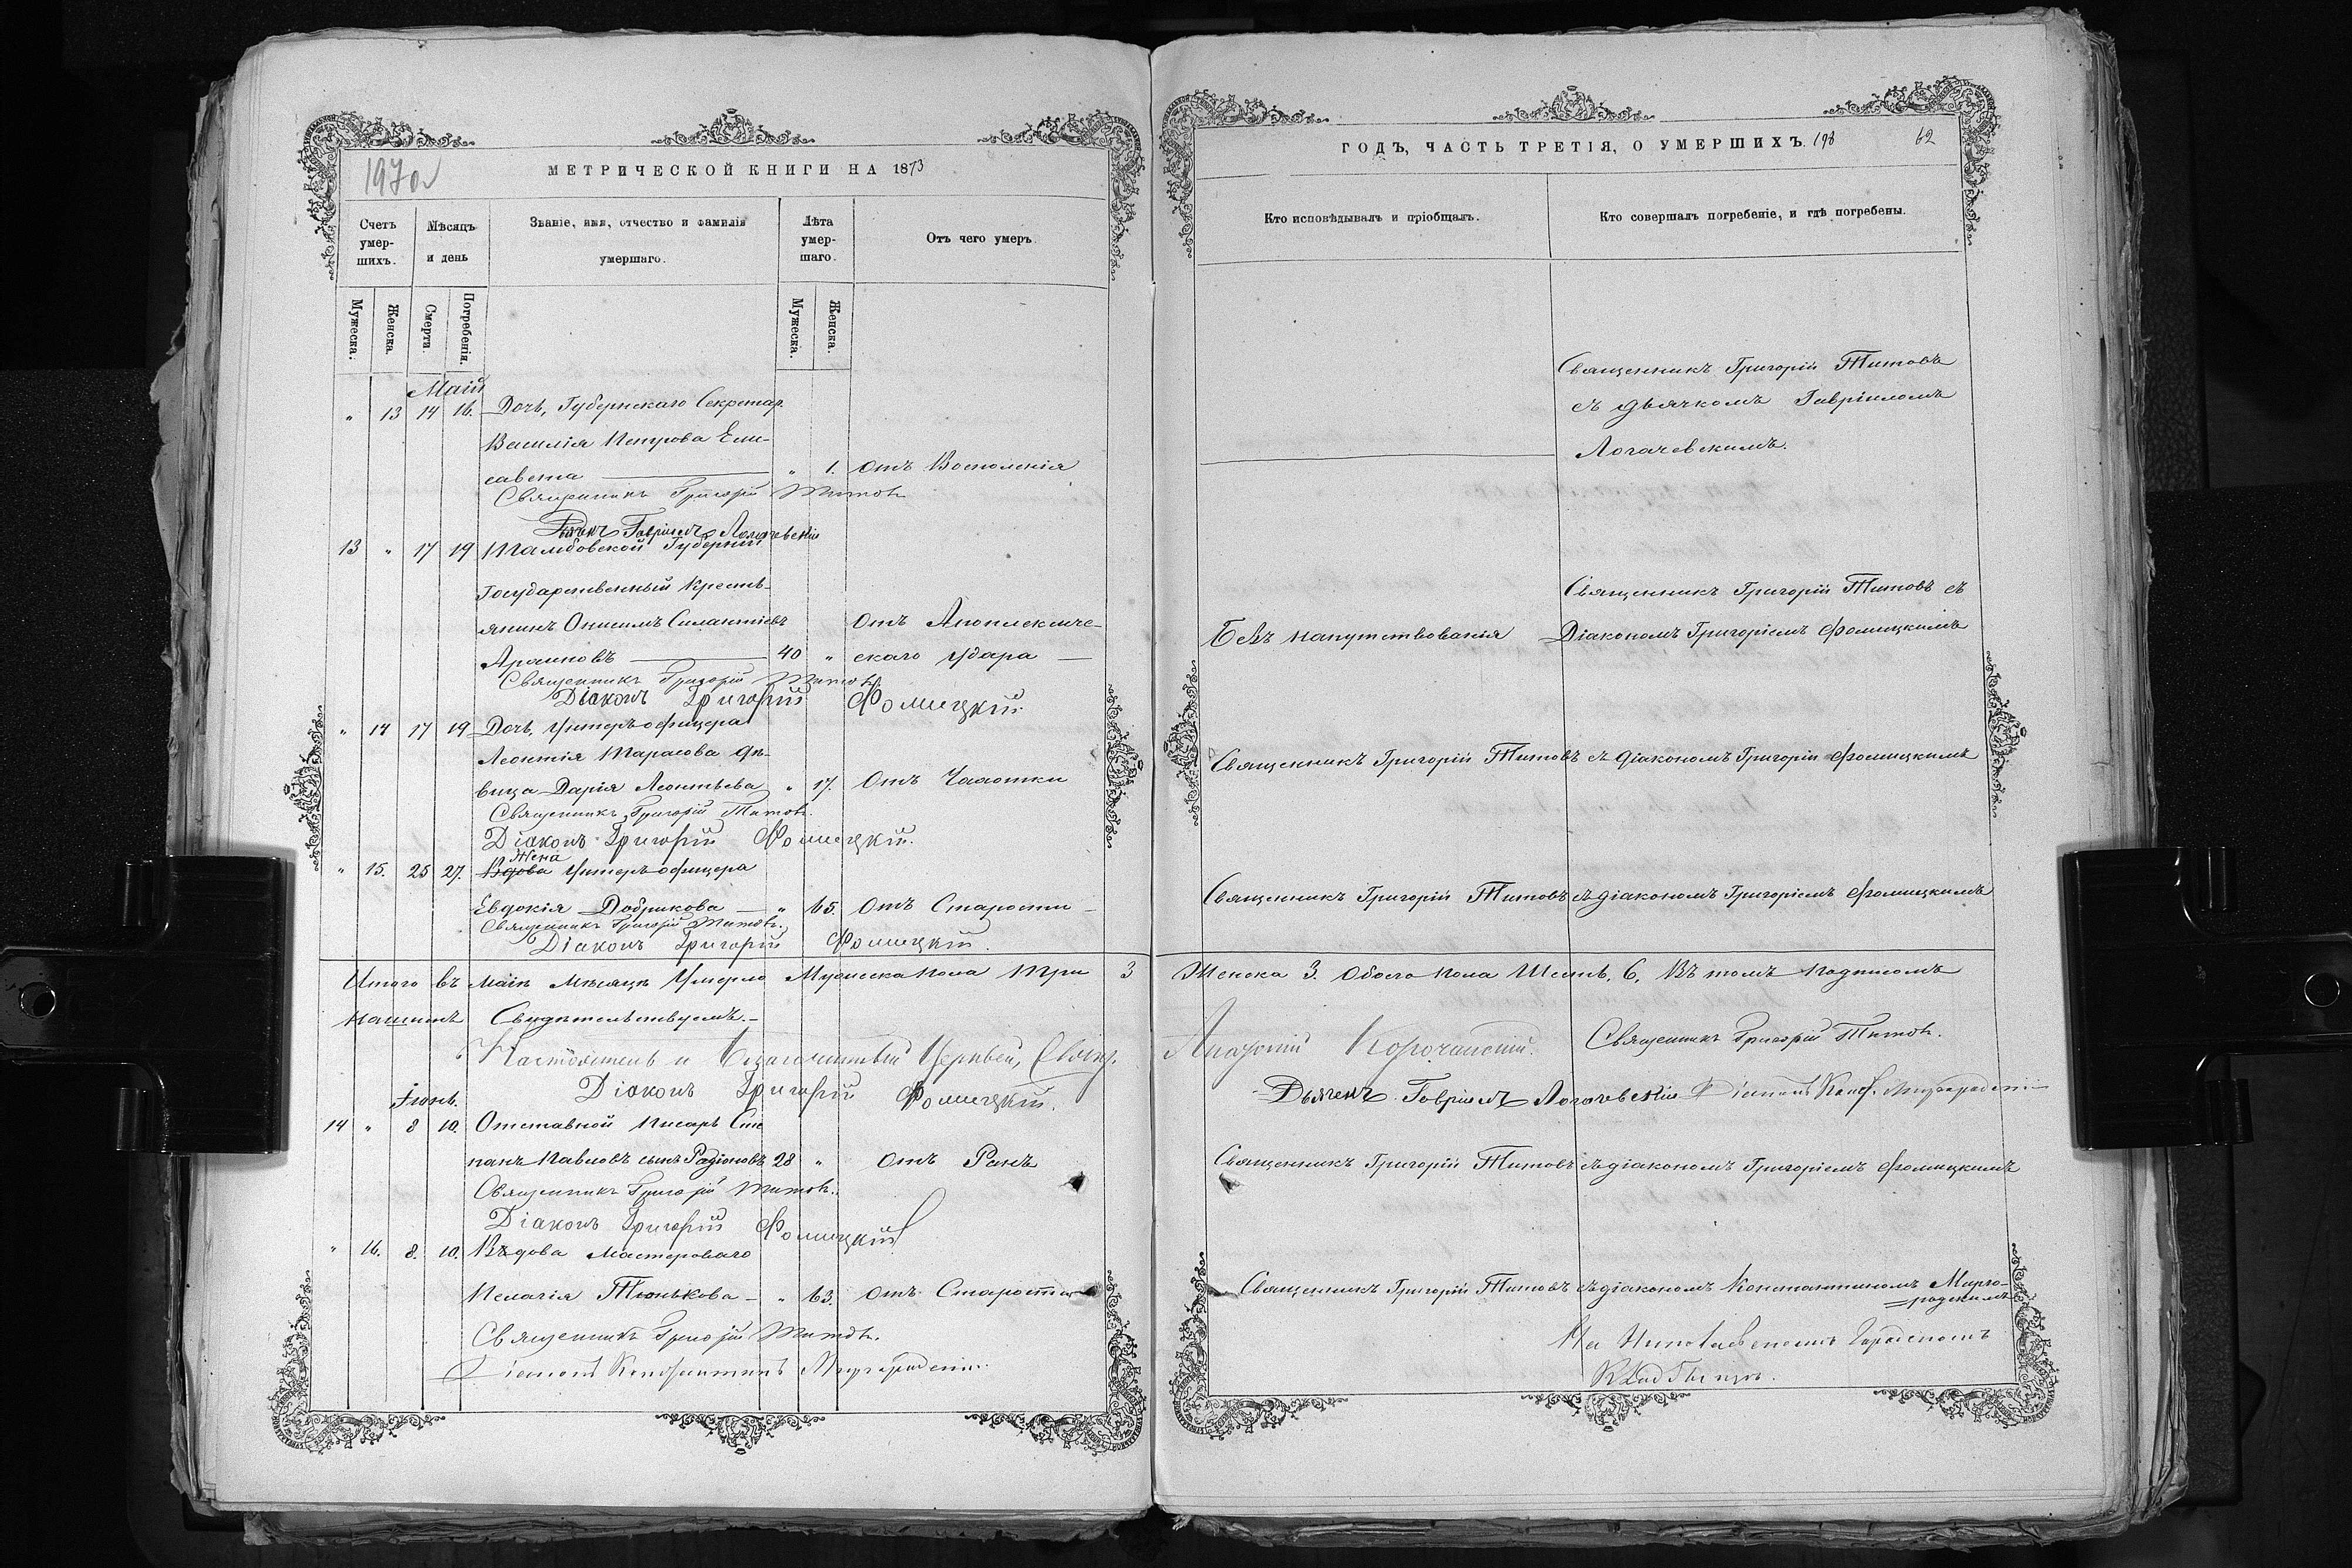 197 об
МЕТРИЧЕСКОЙ КНИГИ НА 1873
Счетъ умер-шихъ.
Мѣсяцъ и день
Званіе, имя, отчество и фамилія умершаго.
Лѣта умер-шаго.
Отъ чего умеръ.
Мужеска.
Женска.
Смерти.
Погребенія.
Мужеска.
Женска.
Маій
" 13 14 16. Дочь, Губернскаго Секретар.
Василія Петрова Ели-
савета " 1. Отъ Воспаленія
Священникъ Григорій Титовъ
Дьячокъ Гавріилъ Логачевскій
13 " 17 19 Тамбовской Губерніи
Государственный Кресть-
янинъ Онисимъ Силантіевъ Отъ Апоплекциче-
Араповъ 40 " скаго Удара
Священникъ Григорій Титовъ
Діаконъ Григорій Фомицкій
" 14 17 19 Дочь, Унтеръ-офицера
Леонтія Тарасова дѣ-
вица Дарія Леонтьева " 17. Отъ Чахотки
Священникъ Григорій Титовъ.
Діаконъ Григорій Фомицкій.
Жена
" 15. 25 27. Вдова Унтеръ-офицера
Евдокія Добрикова " 65. Отъ Старости
Священникъ Григорій Титовъ.
Діаконъ Григорій Фомицкій.
Итого въ маіѣ мѣсяцѣ Умерло Мужеска пола Три 3
нашимъ Свидѣтельствуемъ.
Настоятель и Благочинный Церквей, Свящ.
Діаконъ Григорій Фомицкій.
Іюнь.
14 " 8 10. Отставной писарь Сте
панъ Павловъ сынъ Радіоновъ 28 " Отъ Ранъ
Священникъ Григорій Титовъ.
Діаконъ Григорій Фомицкій
" 16. 8. 10. Въдова Мастероваго
Пелагія Тюнькова " 63. Отъ Старости
Священникъ Григорій Титовъ.
Діаконъ Константинъ Миргородскій
ГОДЪ, ЧАСТЬ ТРЕТІЯ, О УМЕРШИХЪ. 198 62
Кто исповѣдывалъ и пріобщалъ.
Кто совершалъ погребеніе, и гдѣ погребены.
Священникъ Григорій Титовъ
съ дьячкомъ Гавріиломъ
Логачевскимъ.
Священникъ Григорій Титовъ съ
Безъ напутствованія Діакономъ Григоріемъ Фомицкимъ
Священникъ Григорій Титовъ съ діакономъ Григоріи Фомицкимъ
Священникъ Григорій Титовъ съ діакономъ Григоріемъ Фомицкимъ
Женска 3. Обоего пола Шесть. 6. Въ томъ подписомъ
Священникъ Григорій Титовъ.
Дьячекъ Гавріилъ Логачевскій Діаконъ Конс. Миргородскій
Священникъ Григорій Титовъ съ діакономъ Григоріемъ Фомицкимъ
Священникъ Григорій Титовъ съ діакономъ Константиномъ Мирго-
родскимъ
На Николаевскомъ Городскомъ
Кладбищѣ.